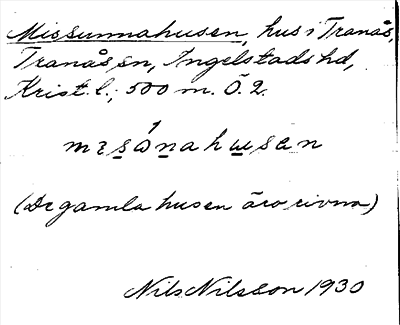 Missunnahusen, hus i Tranås,
Tranås sn, Ingelstads hd,
Krist. l., 500 m. Ö. 2.
mɪsónahusan
(De gamla husen äro rivna)
Nils Nilsson 1930